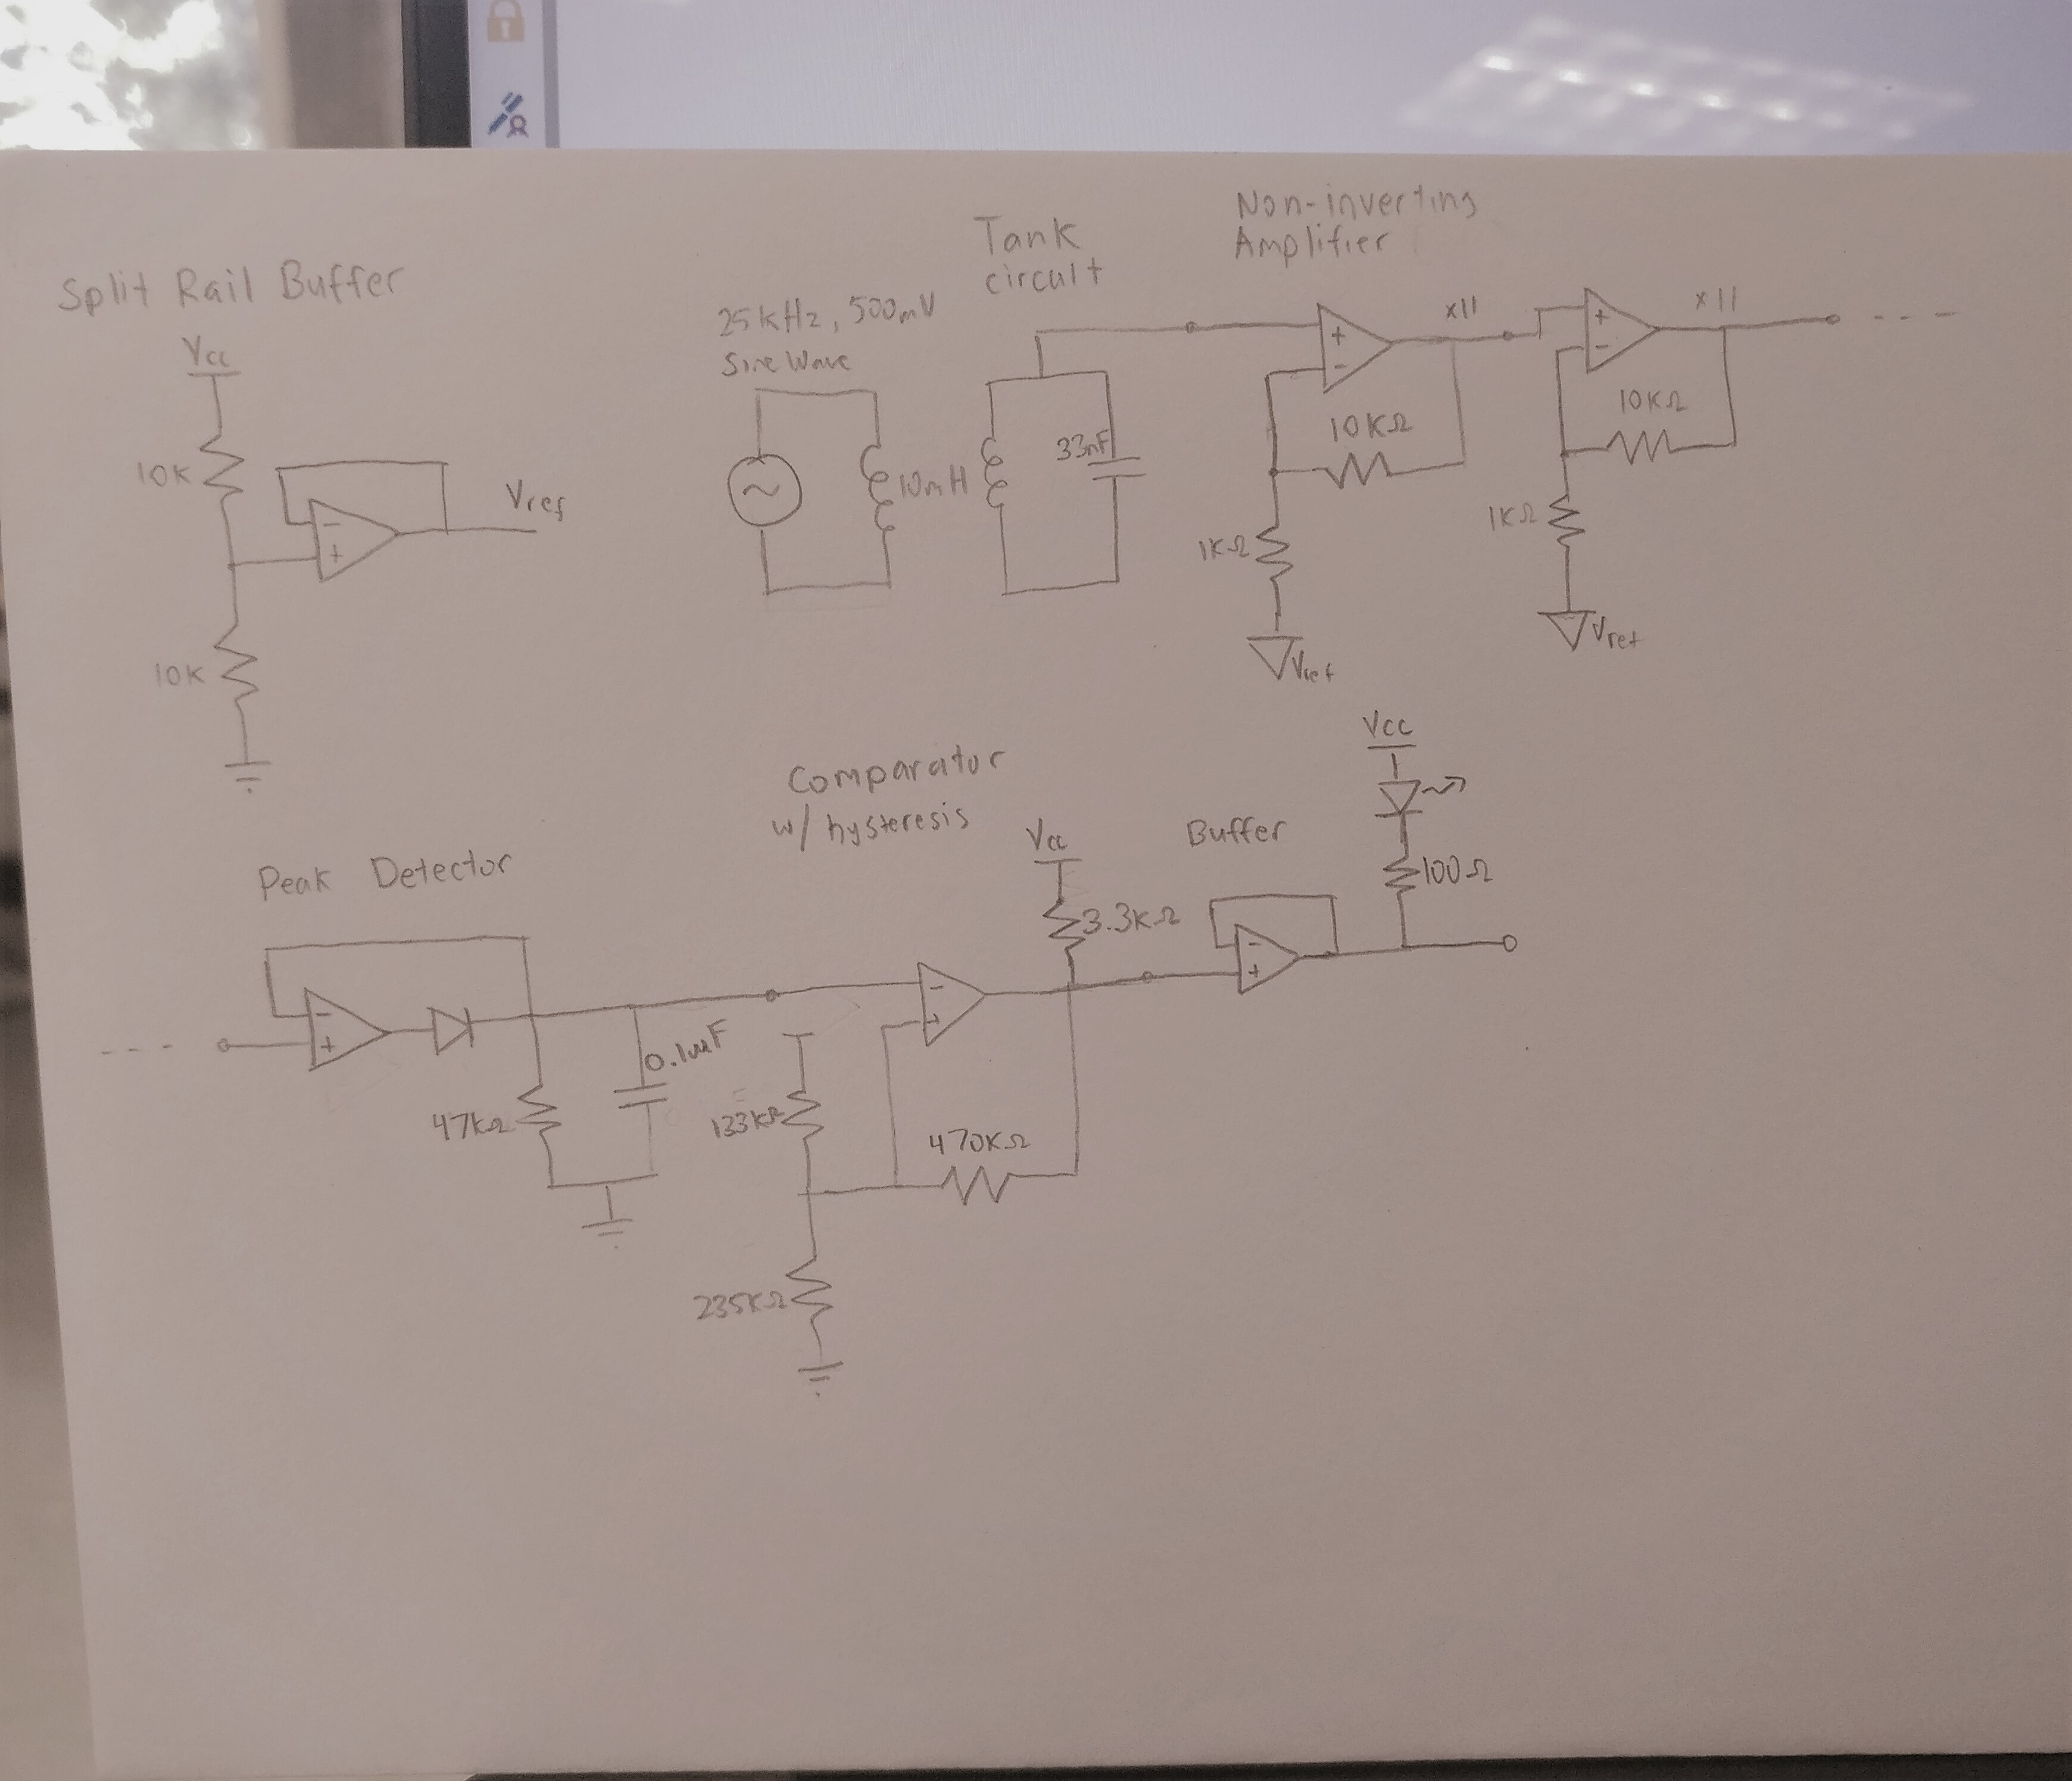 Split Rail Buffer
Vcc
10K
Vref
10K
25kHz, 500mV
Sine Wave
10mH
Tank
circuit
33nF
Non-inverting
Amplifier
x11
10KΩ
1KΩ
Vref
x11
10KΩ
1KΩ
Vref
Peak Detector
47kΩ
0.1uF
Comparator
w/ hysteresis
Vcc
3.3kΩ
133kΩ
470KΩ
235KΩ
Buffer
Vcc
100Ω